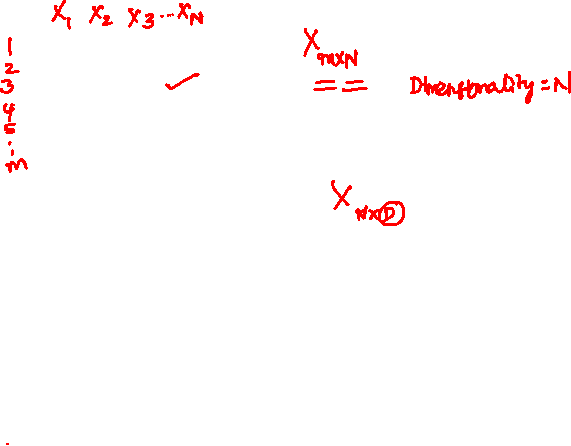 X₁ X₂ X₃ ... X_N
1
2
3 ✓
4
5
:
m
X_m×N
Dimensionality = N
X_N×D